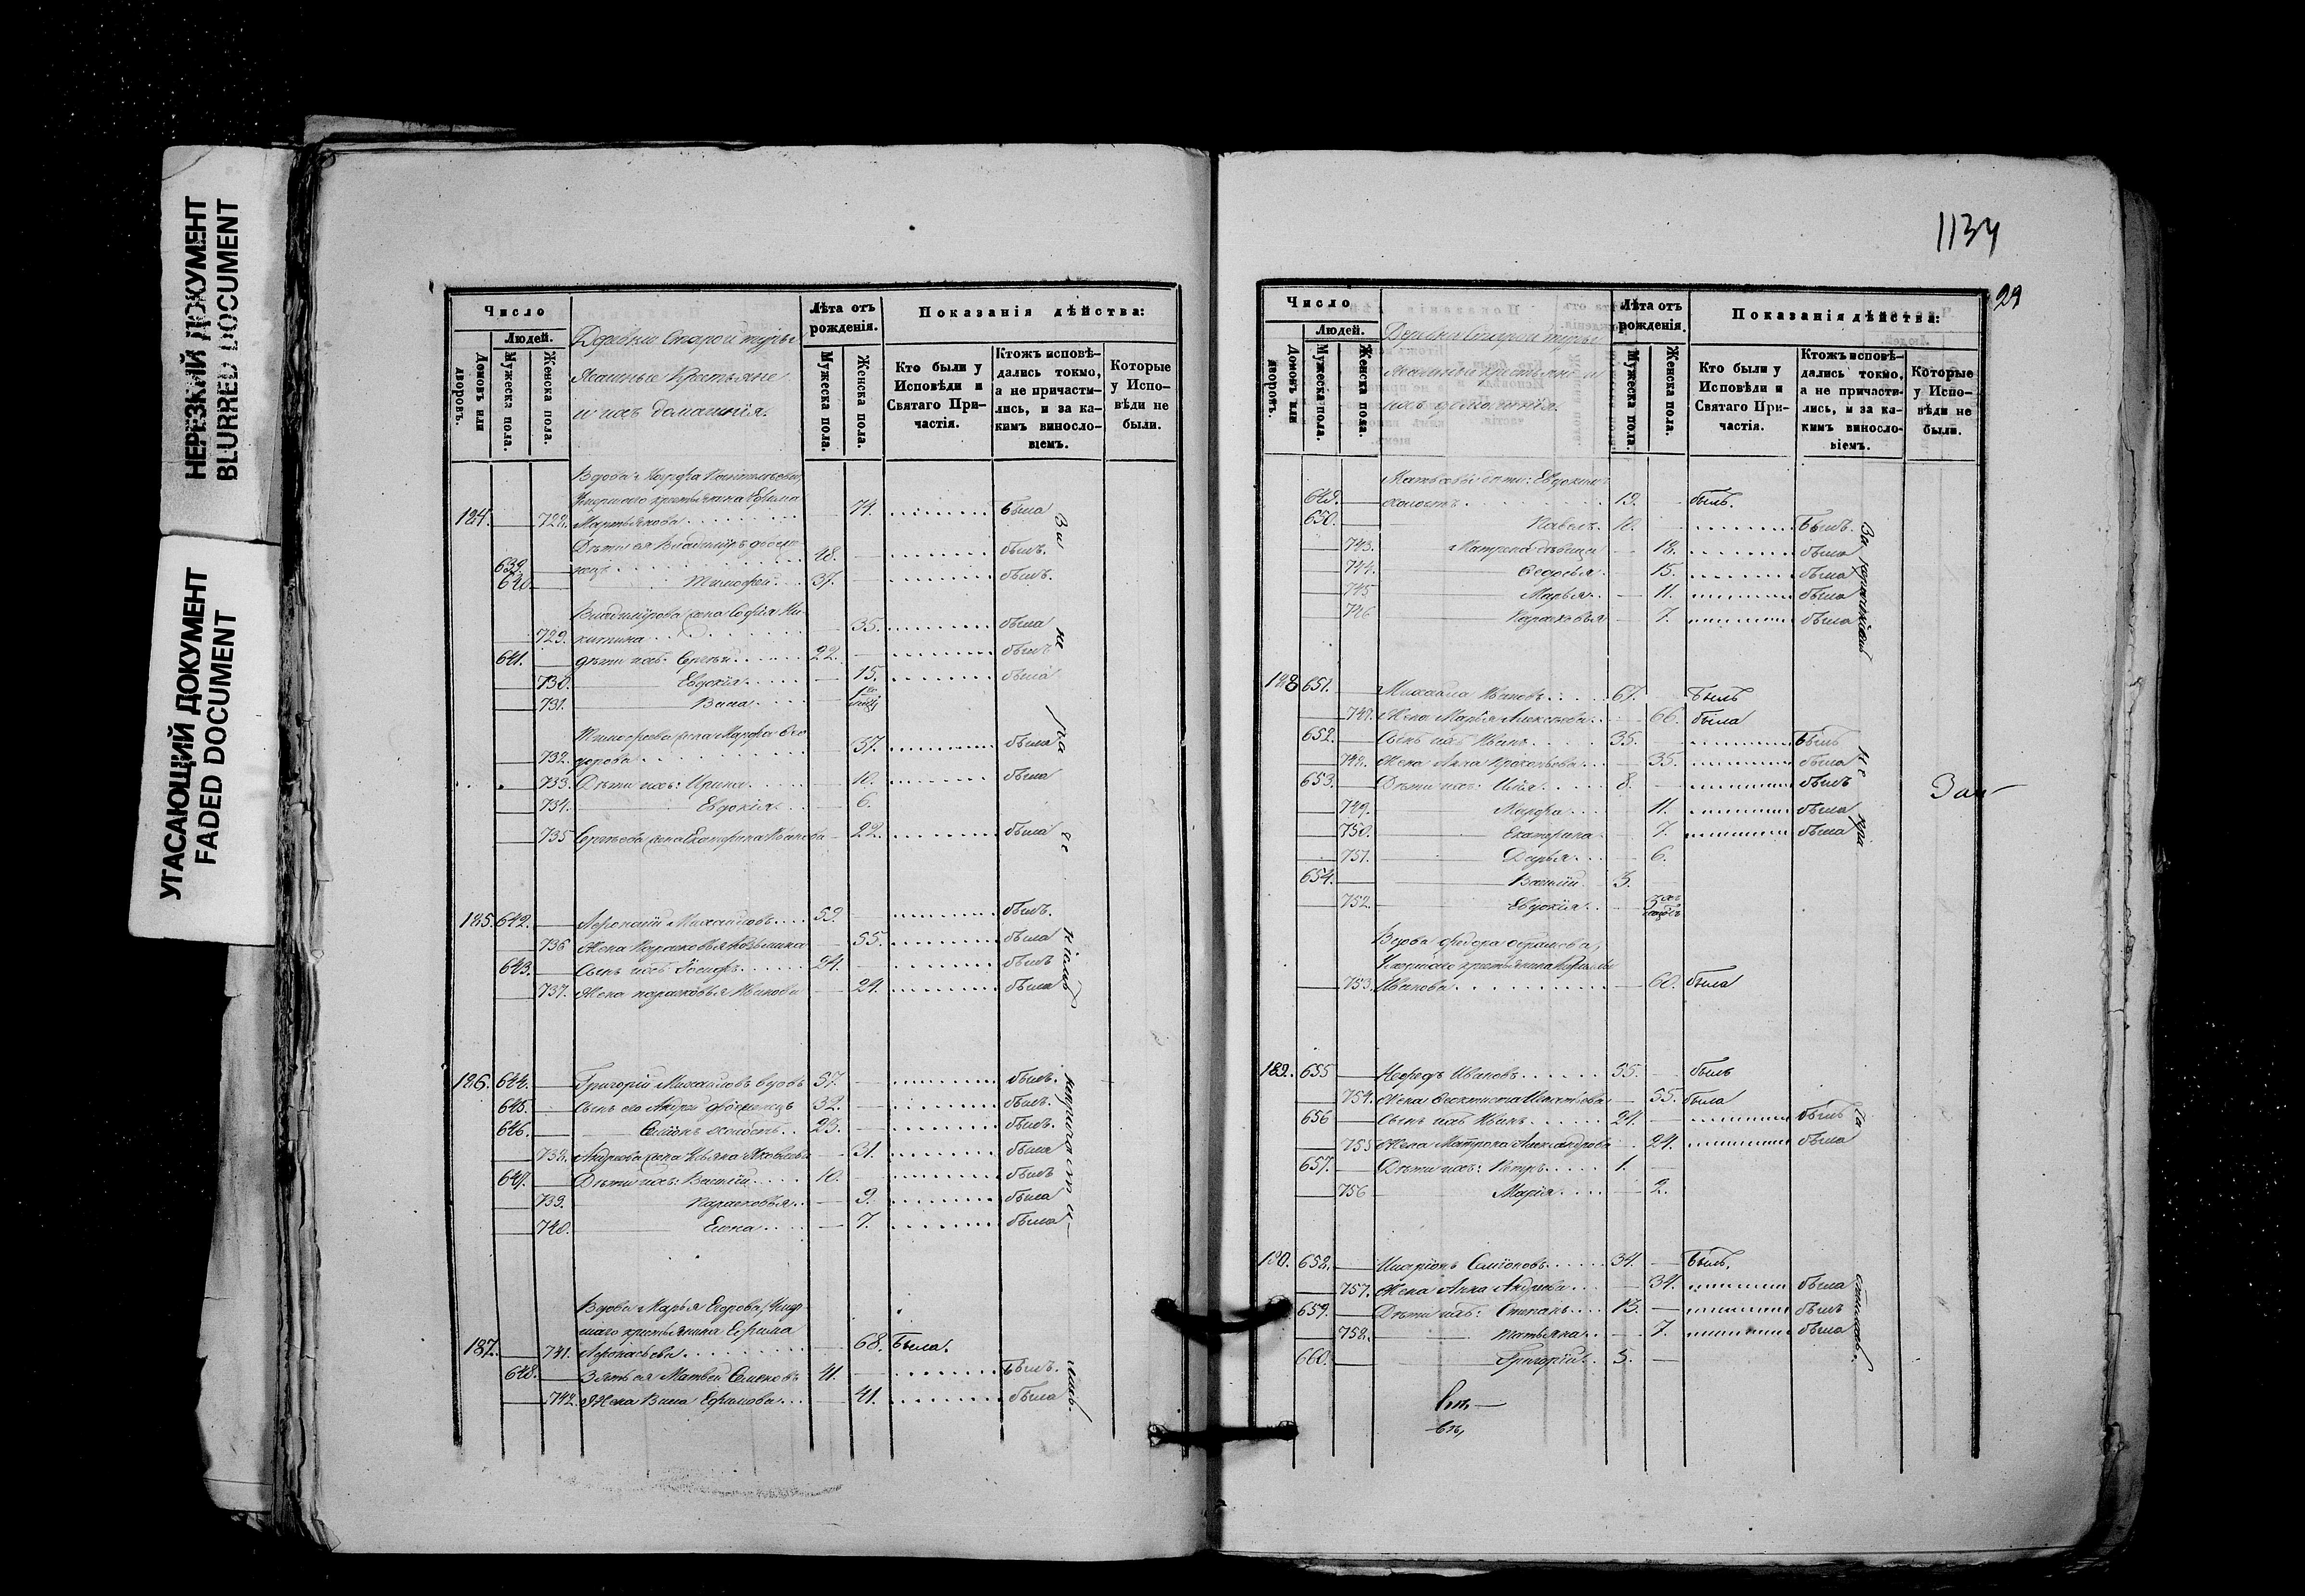 НЕРЕЗКИЙ ДОКУМЕНТ
BLURRED DOCUMENT
УГАСАЮЩИЙ ДОКУМЕНТ
FADED DOCUMENT
Число
Людей.
Домовъ или дворовъ.
Мужеска пола.
Женска пола.
Деревни Старой
крестьяне
и ихъ домашнія.
Лѣта отъ рожденія.
Мужеска пола.
Женска пола.
Показанія дѣйства:
Кто были у Исповѣди и Святаго Причастія.
Ктожъ исповѣдались токмо, а не причастились, и за какимъ винословіемъ.
Которые у Исповѣди не были.
Вдова Марфа
Умершаго крестьянина Ефима
184. 728. 74. была
Дѣти ея Владиміръ
639. 48. былъ.
640. Тимофей 37. былъ.
Владимірова жена Софія Ни-
729. китина 35. была
641. дѣти ихъ: Сергѣй 22. былъ
730. Евдокія 15. была
731. Васса
Тимофеева жена Марфа Ѳео
732. дорова 37. была
733. Дѣти ихъ: Ирина 10. была
734. Евдокія 6.
735 Сергѣева жена Екатерина Иванова 22. была
185. 642. Афонасій Михаиловъ 59. былъ.
736 Жена Парасковья 55. была
643. Сынъ ихъ Іосифъ 24. былъ
737. Жена Парасковья Иванова 24. была
186. 644. Григорій Михаиловъ вдовъ 57. былъ.
645. Сынъ его Андрей 32. былъ.
646. Симіонъ холостъ 23. былъ.
738. Андреева жена Яковлева 31. была
647. Дѣти ихъ: Василій 10. былъ
739. Парасковья 9. была
740. Елена 7. была
Вдова Марья Егорова, Умер
шаго крестьянина Ефима
187. 741. Афонасьева 68. Была.
648. Зять ея Матвей Симеоновъ 41. былъ.
742. Жена Васса Ефимова 41. была
1134
29
Число
Людей.
Домовъ или дворовъ.
Мужеска пола.
Женска пола.
Деревни Старой
крестьяне и
ихъ домашнія.
Лѣта отъ рожденія.
Мужеска пола.
Женска пола.
Показанія дѣйства:
Кто были у Исповѣди и Святаго Причастія.
Ктожъ исповѣдались токмо, а не причастились, и за какимъ винословіемъ.
Которые у Исповѣди не были.
Матвѣевы дѣти: Евдокимъ
649. холостъ 19. былъ.
650. Павелъ 10. Былъ.
743. Матрена дѣвица 18. была
744. Ѳедосья 15. была
745 Марья 11. была
746 Парасковья 7. была
188 651. Михаила Ивановъ 67. Былъ
747. Жена Марья Алексѣева 66. была
652. Сынъ ихъ Иванъ 35. Былъ
748. Жена Анна Прокопьева 35. была
653. Дѣти ихъ: Илья 8. былъ
749. Марфа 11. была
750. Екатерина 7. была
751. Дарья 6.
654. Василій 3.
752. Евдокія
Вдова Абрамова,
Умершаго крестьянина
753. Иванова 60. была
189. 655 Нефедъ Ивановъ 55. былъ
754. Жена Ѳеоктиста Игнатьева 55. была
656 Сынъ ихъ Иванъ 24. былъ
755 Жена Матрона Александрова 24. была
657. Дѣти ихъ: Петръ 1.
756 Марія 2.
190. 658. Иларіонъ Симіоновъ 34. Былъ.
757. Жена Анна Андреева 34. была
659. Дѣти ихъ: Степанъ 13. былъ
758. Татьяна 7. была
660. Григорій 5.